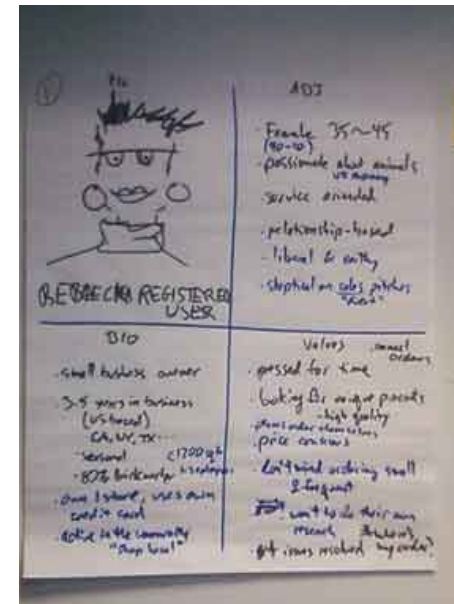 REBECCA REGISTERED
USER
ADJ
· Female 35~45
(90-10)
· passionate about animals
vs money
service oriented
· relationship-based
· liberal & earthy
· skeptical on sales pitches
BIO
· small business owner
· 3-5 years in business
(US based)
CA, NY, TX...
· seasonal
<1700 sqft
· 80%
· own 1 store, uses own
credit card
· active in the community
"Shop local"
Values
· pressed for time
· looking for unique products
- high quality
price conscious
· don't mind ordering small
& frequent
want to do their own
research
· get issues resolved my order?